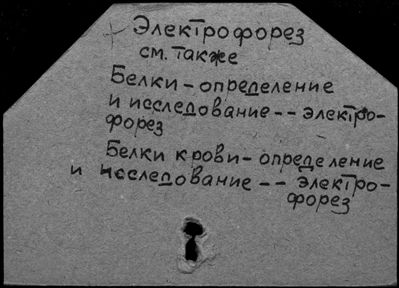 Электрофорез
см. также
Белки-определение
и исследование -- электро-
форез
Белки крови-определение
и исследование -- электро-
форез